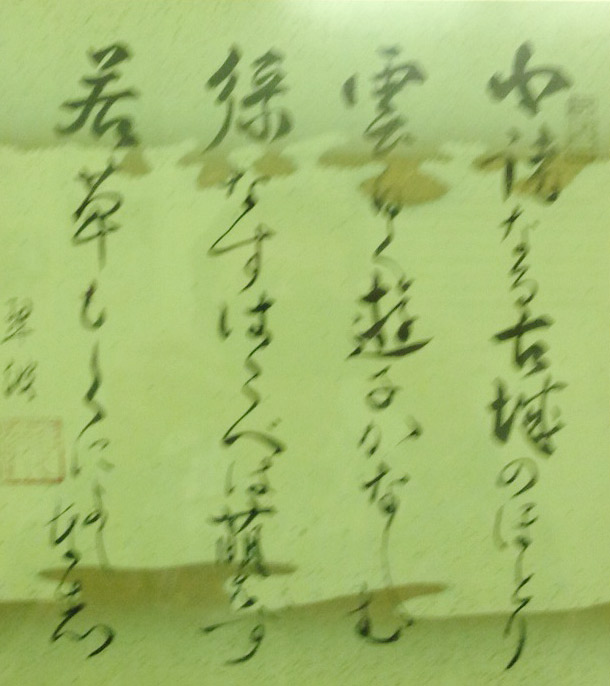 小諸なる古城のほとり
雲白く遊子かなしむ
緑なすはこべは萌えず
若草もしくによしなし